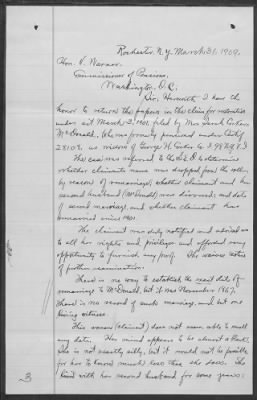 Rochester, N.Y. March 31, 1909.
Hon. V. Warner.
Commissioner of Pensions,
Washington, D.C.
Sir, Herewith I have the
honor to return the papers in the claim for restoration
under act March 3, 1901, filed by Mrs Sarah
McDonald, who was formerly pensioned under Ctf
28108, as widow of George H. Co. I 98 N.Y. I
The case was referred to the S.E.D. to determine
whether claimants name was dropped from the rolls
by reason of remarriage; whether claimant and her
second husband (McDonald) were divorced; and date
of second marriage, and whether claimant has
remarried since 1901.
The claimant was duly notified and advised as
to all her rights and privileges and afforded every
opportunity to furnish any proof. She waives notice
of further examination.
There is no way to establish the exact date of
remarriage to McDonald, but it was November 1867.
There is no record of such marriage, and but one
living witness.
This woman (claimant) does not seem able to recall
any date. Her mind appears to be almost a blank.
She is not exactly silly, but it would not be possible
for her to know much less than she does. She
lived with her second husband for some years:
3